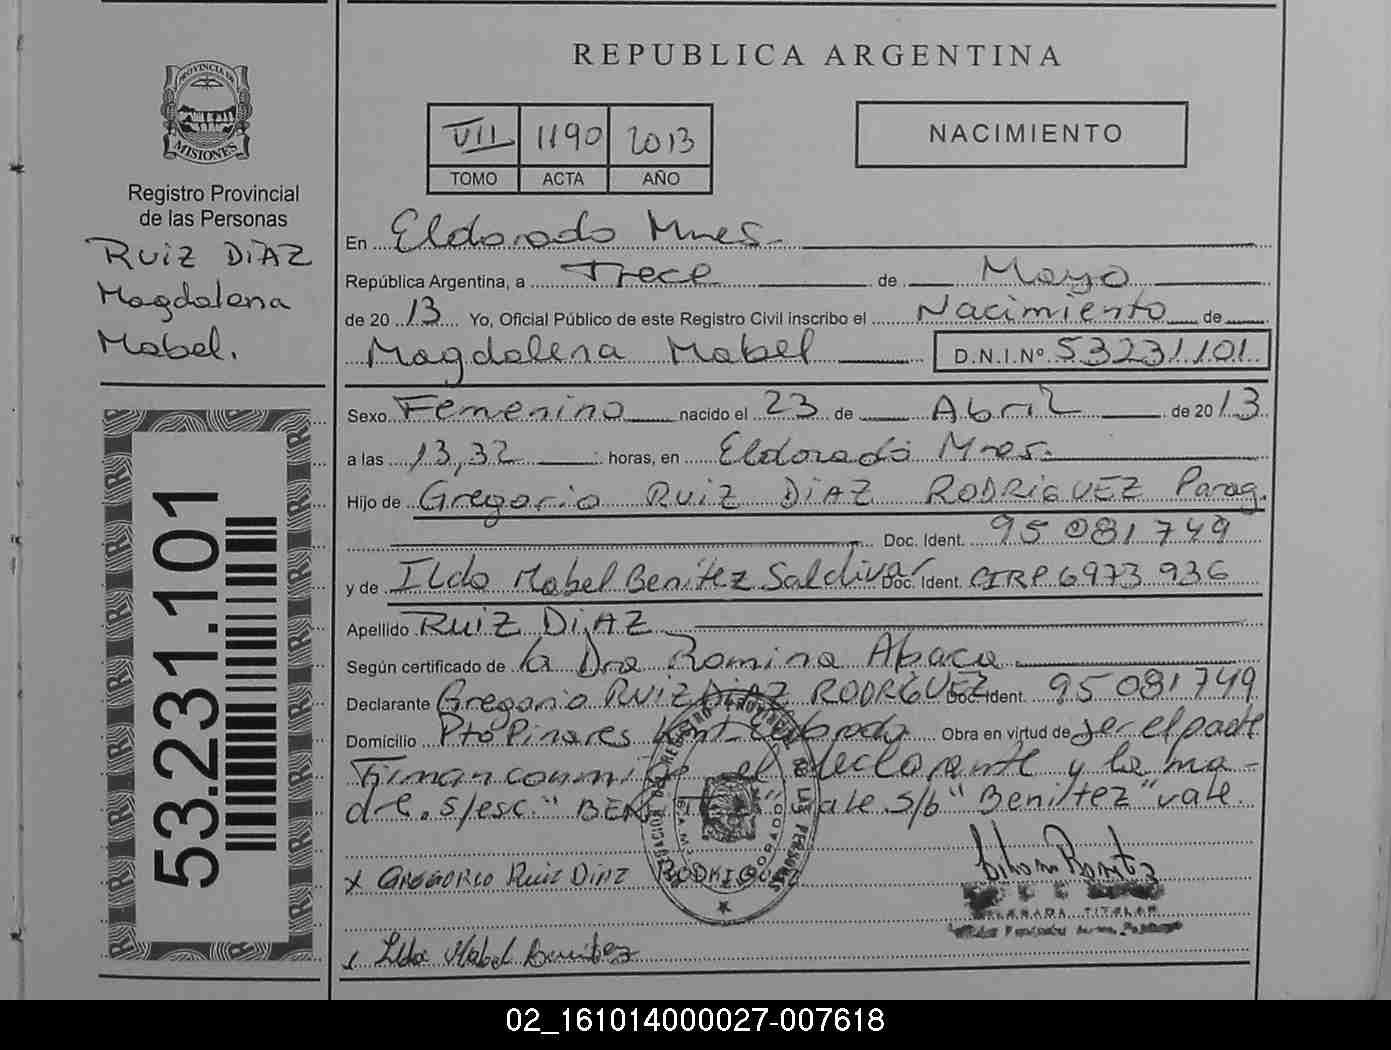 REPUBLICA ARGENTINA
PROVINCIA DE
MISIONES
Registro Provincial
de las Personas
RUIZ DIAZ
Magdalena
Mabel.
VII 1190 2013
TOMO ACTA AÑO
NACIMIENTO
En Eldorado Mnes.
República Argentina, a Trece de Mayo
de 2013 Yo, Oficial Público de este Registro Civil inscribo el Nacimiento de
Magdalena Mabel D.N.I.Nº 53231101
Sexo Femenino nacido el 23 de Abril de 2013
a las 13,32 horas, en Eldorado Mnes.
Hijo de Gregorio RUIZ DIAZ RODRIGUEZ Parag.
Doc. Ident. 95 081 749
y de Ilda Mabel Benitez Saldivar Doc. Ident. CIRP 6973 936
Apellido RUIZ DIAZ
Según certificado de la Dra Romina Abaca
Declarante Gregorio RUIZ DIAZ RODRIGUEZ Doc. Ident. 95 081 749
Domicilio Pto Pinares Eldorado Obra en virtud de ser el padre
Firman conmigo el declarante y la ma-
dre. s/esc." vale s/b "Benitez" vale.
x GREGORIO RUIZ DIAZ RODRIGUEZ
Ilda Mabel Benitez
TITULAR
53.231.101
02_161014000027-007618